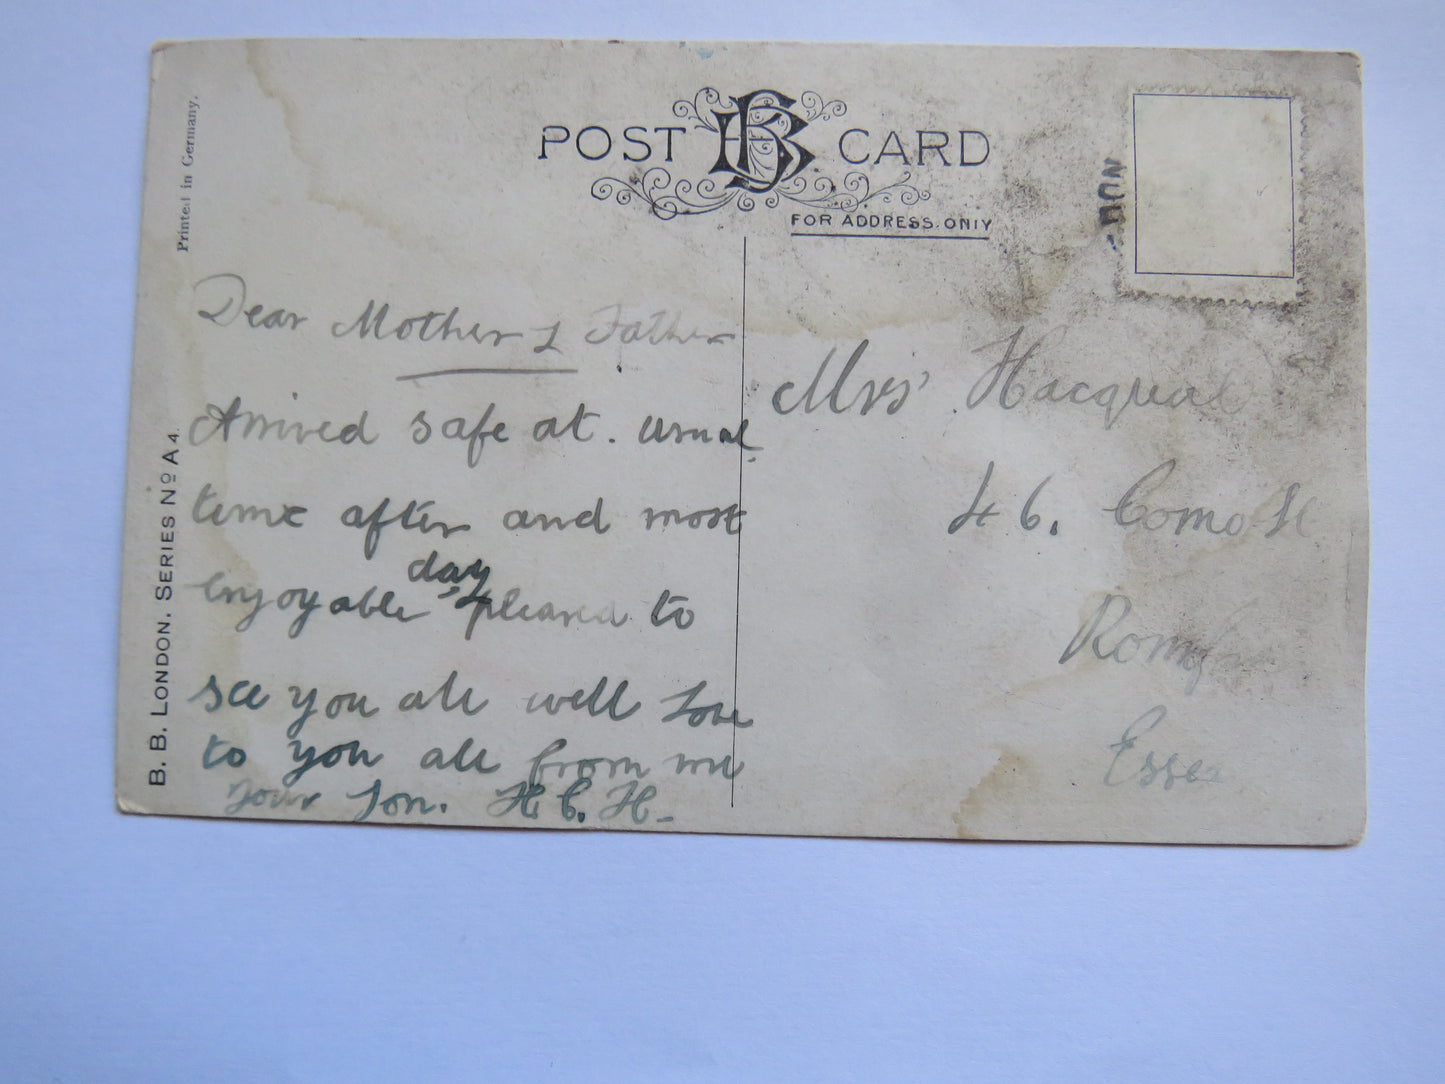 Printed in Germany.
B. B. LONDON. SERIES Nº A 4.
POST BB CARD
FOR ADDRESS ONLY
Dear Mother & Father
Arrived safe at. usual
time after and most
enjoyable day pleased to
see you all well Love
to you all from me
Your Son. H. C. H.
Mrs Hacqual
46. Como St
Romf
Esse